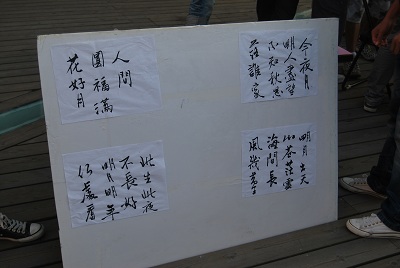 今夜月
明人盡望
不知秋思
誰家
人間
團福滿
花好月
明月出天
山蒼茫雲
海間長
風幾萬里
此生此夜
不長好
明月明年
何處看